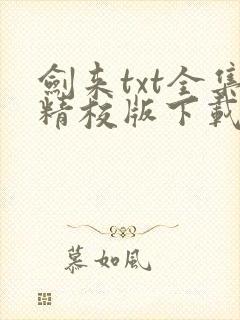 劍来txt全集
精校版下載
慕如風